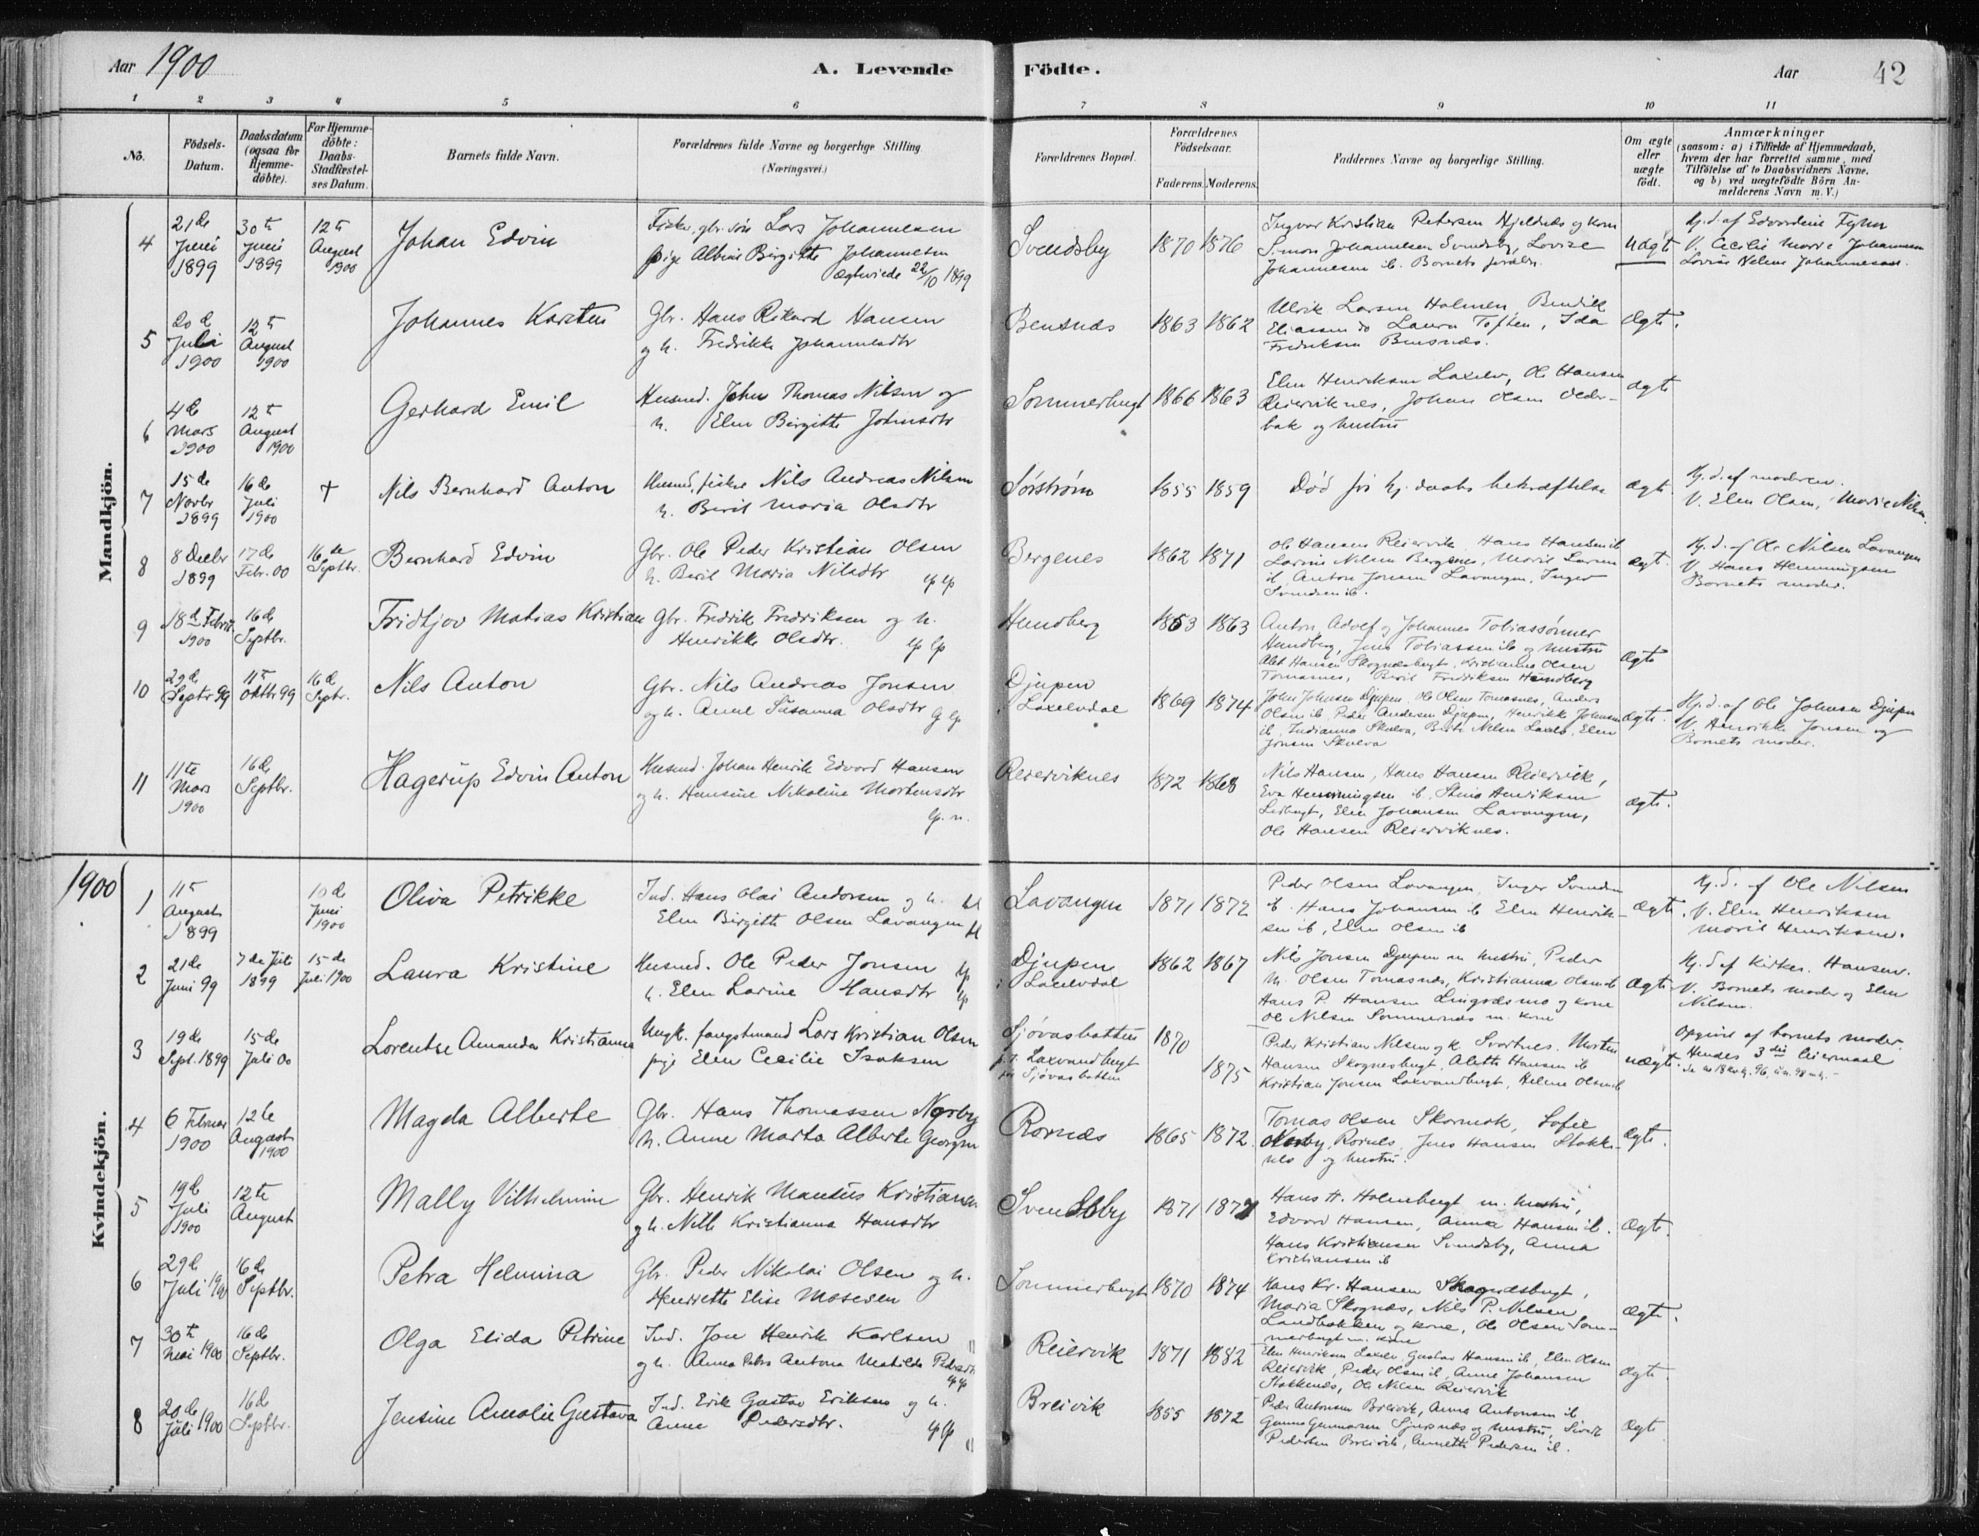 Aar 1900 A. Levende Födte. Aar 42
1 2 3 4 5 6 7 8 9 10 11
No.
Födsels-Datum.
Daabsdatum (ogsaa for Hjemme-döbte).
For Hjemme-döbte: Daabs-Stadfæstel-ses Datum.
Barnets fulde Navn.
Forældrenes fulde Navne og borgerlige Stilling (Næringsvei.)
Forældrenes Bopæl.
Forældrenes Födselsaar.
Faderens. Moderens.
Faddernes Navne og borgerlige Stilling.
Om ægte eller uægte födt.
Anmærkninger
(saasom: a) i Tilfælde af Hjemmedaab,
hvem der har forrettet samme, med
Tilföielse af to Daabsvidners Navne,
og b) ved uægtefödte Börn An-
melderens Navn m. V.)
Mandkjön.
4 21de Juni 1899 30te Juni 1899 12te August 1900 Johan Edvin
Fisker, gbr. søn Lars Johannesen
pige Albine Birgitte Johannesen
Ægteviede 22/10 1899
Svendsby 1870 1876
Ingvar Kristian Petersen Hjeldnæs og kone
Simon Johannesen Svendsby, Lovise
Johannesen ib. Barnets foræld.
Uægt
Hj. d. af
V. Cecilie Marie Johannesen
Lovise Helene Johannesen.
5 20de Juli 1900 12te August 1900 Johannes Karsten
Gbr. Hans Rikard Hansen
og h. Fredrikke Johannesdtr
Bensnæs 1863 1862
Ulrik Larsen Holmen, Bendik
Eliassen do Laura Toften, Ida
Fredriksen Bensnæs.
Ægte.
6 4de Mars 1900 12te August 1900 Gerhard Emil
Husmd. John Thomas Nilsen og
h. Elen Birgitte Johnsdtr
Sommerbugt 1866 1863
Elen Henriksen Laxelv, Ole Hansen
Reierviknes, Johan Olsen Older-
bak og hustru
ægte
7 15de Novbr 1899 16de Juli 1900 + Nils Bernhard Anton
Husmd, fisker Nils Andreas Nilsen
h. Beril Maria Olsdtr
Sørstrøm 1855 1859
Død før hj. daabs bekræftelse
ægte.
Hj. d. af moderen.
V. Elen Olsen, Marie Nilsen.
8 8 Decbr 1899 17de Febr. 00 16de Septbr. Bernhard Edvin
Gbr. Ole Peder Kristian Olsen
h. Beril Maria Nilsdtr lp lp
Bergenes 1862 1871
Ole Hansen Reiervik Hans Hansen ib
Larine Nilsen Bergenes, Marit Larsen
ib, Anton Jonsen Lavangen, Inger
Svendsen ib.
ægt.
Hj. d. af Ole Nilsen Lavangen
V. Hans Hemmingsen
Barnets moder.
9 18de Febru. 1900 16de Septbr. Fridtjov Matias Kristian
Gbr. Fredrik Fredriksen og h.
Henrikke Olsdtr. lp lp
Hundberg 1853 1863
Anton, Adolf og Johannes Tobiassønner
Hundberg, Jens Tobiassen ib og hustru
Alet Hansen Skognæsbugt, Kristianna Olsen
Tomasnes, Beril Fredriksen Hundberg
Ægte
10 29de Septr 99 11te Oktbr 99 16de Septr. Nils Anton
Gbr. Nils Andreas Jonsen
og h. Anne Susanna Olsdtr
Djupen i Laxelvdal 1869 1874
John Johnsen Djupen, Ole Olsen Tomasnes, Anders
Olsen ib Peder Andersen Djupen, Henrikke Johnsen
ib, Indianna Skulva, Berit Nilsen Laxelv, Elen
Jonsen Skulva
ægte.
Hj. d. af Ole Johnsen Djupen
V. Henrikke Jonsen og
Barnets moder.
11 11te Mars 1900 16de Septbr. Hagerup Edvin Anton
Husmd. Johan Henrik Edvard Hansen
og h. Hansine Nikoline Mortensdtr
lp. n.
Reierviknes 1872 1868
Nils Hansen, Hans Hansen Reiervik,
Eva Hemmingsen ib, Stina Henriksen
Leibugt, Elen Johansen Lavangen,
Ole Hansen Reierviknes.
ægte.
1900
Kvindekjön.
1 11te August 1899 Juni 1900 Oliva Petrikke
Ind. Hans Olai Andersen og h.
Elen Birgitte Olsen Lavangen
Lavangen 1871 1872
Peder Olsen Lavangen, Inger Svendsen
ib. Hans Johansen ib Elen Henrik-
sen ib, Elen Olsen ib
Ægte.
Hj. d. af Ole Nilsen
V. Elen Henriksen
Marit Henriksen.
2 21de Juni 99 7de Juli 1899 15de Juli 1900 Laura Kristine
Husmd. Ole Peder Jonsen lp
h. Elen Larine Hansdtr lp
Djupen i Laxelvdal 1862 1867
Nils Jonsen Djupen m hustru, Peder
M. Olsen Tomasnæs, Kristianna Olsen ib
Hans P. Hansen Lingvdsmo og kone
Ole Nilsen Sommernæs m. kone
Ægte
Hj. d. af kirkes. Hansen.
V. Barnets moder og Elen
Nilsen.
3 19de Sept. 1899 15de Juli 00 Lorentse Amanda Kristianna
Ungk. fangstmand Lars Kristian Olsen
pige Elen Cecilie Isaksen
Sjøvasbotten p.t. Laxvandbugt
før Sjøvasbotten
1870 1875
Peder Kristian Nilsen og k. Svartnes. Morten
Hansen Skognesbugt, Aletta Hansen ib
Kristian Jonsen Laxvandbugt, Helene Olsen ib
uægte.
Opgivet af barnets moder.
Hendes 3die leiermaal
4 6 Februar 1900 12te August 1900 Magda Alberte
Gbr. Hans Thomassen Norby
h. Anne Marta Alberte Georgsen
Rornæs 1865 1872.
Tomas Olsen Skornesk, Sofie
Norby, Rornes, Jens Hansen Stokke-
nes og hustru.
Ægte.
5 19de Juli 1900 12te August Mally Vilhelmine
Gbr. Henrik Mantius Kristiansen
og h. Nilla Kristianna Hansdtr
Svendsby 1871 1877
Hans H. Holmebugt m. hustru,
Edvard Hansen, Anna Hansen ib.
Hans Kristiansen Svendsby, Anna
Kristiansen ib
Ægte.
6 29de Juli 1900 16de Septbr. Petra Helmina
Gbr. Peder Nikolai Olsen og h.
Henrette Elise Mosesen
Sommerbugt 1870 1874
Hans Kr. Hansen Skognæsbugt,
Maria Skognæs, Nils P. Nilsen
Landbakken og kone, Ole Olsen Som-
merbugt m. kone
Ægte.
7 30te Mai 1900 16de Septbr. Olga Elida Petrine
Ind. Jon Henrik Karlsen
og h. Anna Petra Antona Matilde Pedersdtr
lp lp
Reiervik 1871 1882
Elen Henriksen Laxelv, Gustav Hansen ib, Elen Olsen
Reiervik, Peder Olsen ib, Anne Johansen
Stokkenæs, Ole Nilsen Reiervik
ægte.
8 20de Juli 1900 16de Septbr. Jensine Amalie Gustava
Ind. Erik Gustav Eriksen og h.
Anne Pedersdtr. lp lp
Breivik 1855 1872
Peder Antonsen Breivik, Anna Antonsen ib,
Gunnar Gunnarsen Sjursnæs og hustru, Sivert
Pedersen Breivik, Annette Pedersen ib.
Ægte